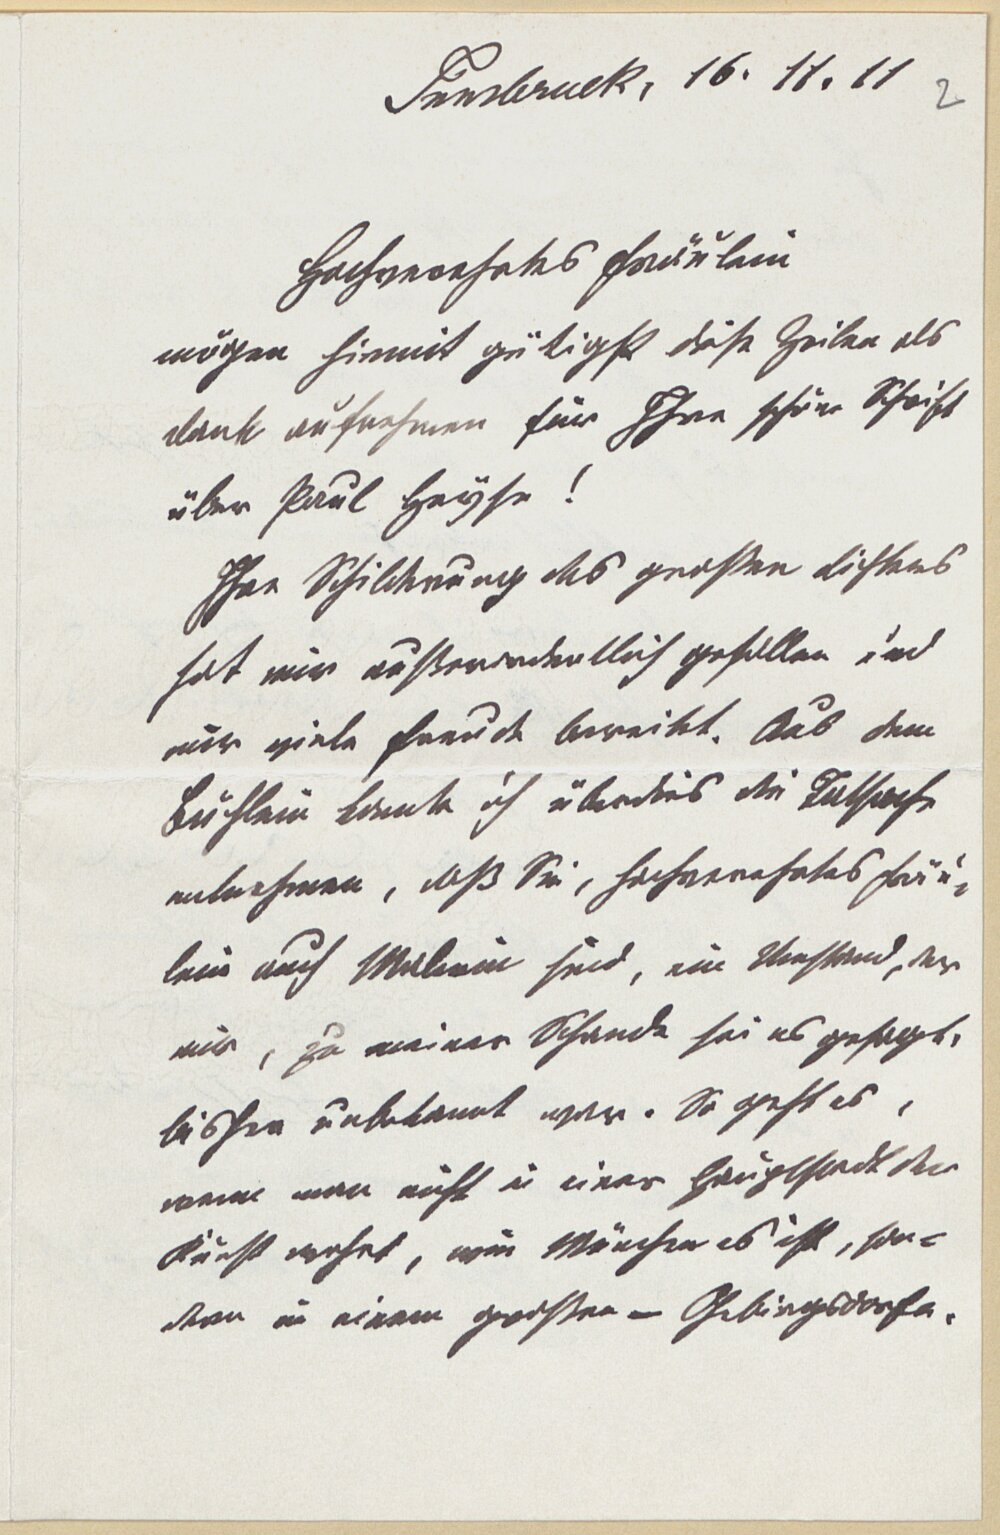 Innsbruck, 16. 11. 11
2
Hochverehrtes Fräulein
mögen hiemit gütigst diese Zeilen als
Dank aufnehmen für Ihre schöne Schrift
über Paul Heyse!
Ihre Schilderung des großen Dichters
hat mir außerordentlich gefallen und
mir viele Freude bereitet. Aus dem
Büchlein konnte ich überdies die Tatsache
entnehmen, daß Sie, hochverehrtes Fräu-
lein auch Malerin sind, ein Umstand, der
mir, zu meiner Schande sei es gesagt,
bisher unbekannt war. So geht es,
wenn man nicht in einer Hauptstadt der
Kunst wohnt, wie München es ist, son-
dern in einem großen – Gebirgsdorfe.